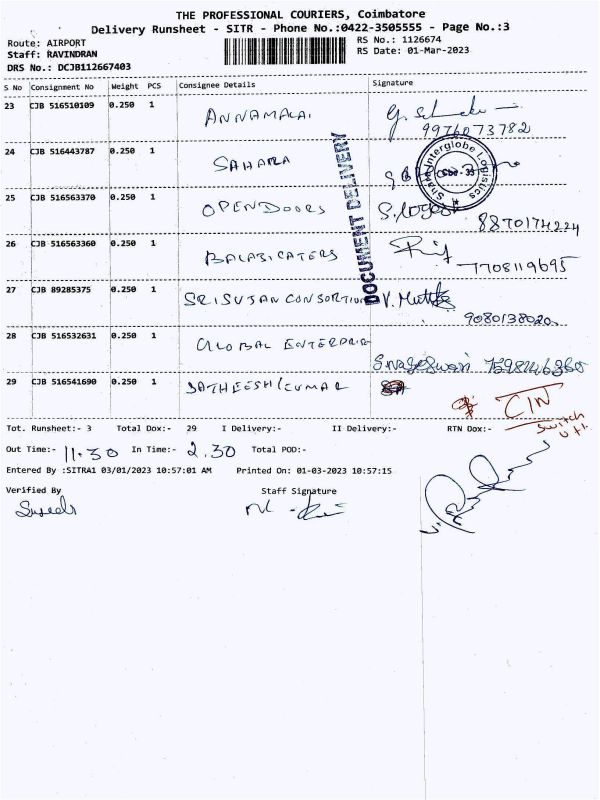 THE PROFESSIONAL COURIERS, Coimbatore
Delivery Runsheet - SITR - Phone No.:0422-3505555 - Page No.:3
Route: AIRPORT
Staff: RAVINDRAN
DRS No.: DCJB112667403
RS No.: 1126674
RS Date: 01-Mar-2023
S No Consignment No Weight PCS Consignee Details Signature
23 CJB 516510109 0.250 1 ANNAMALAI
9976073782
24 CJB 516443787 0.250 1 SAHARA
Interglobe Logistics
25 CJB 516563370 0.250 1 OPENDOORS
8870174224
26 CJB 516563360 0.250 1 BALAJICATERS
7708119695
27 CJB 89285375 0.250 1 SRISUJAN CONSORTIUM V. Muthu
9080138020
28 CJB 516532631 0.250 1 GLOBAL ENTERPRIS
7598246360
29 CJB 516541690 0.250 1 SATHEESHKUMAR
DOCUMENT DELIVERY
CIN
Switch
Tot. Runsheet:- 3 Total Dox:- 29 I Delivery:- II Delivery:- RTN Dox:-
Out Time:- 11.30 In Time:- 2.30 Total POD:-
Entered By :SITRA1 03/01/2023 10:57:01 AM Printed On: 01-03-2023 10:57:15
Verified By Staff Signature